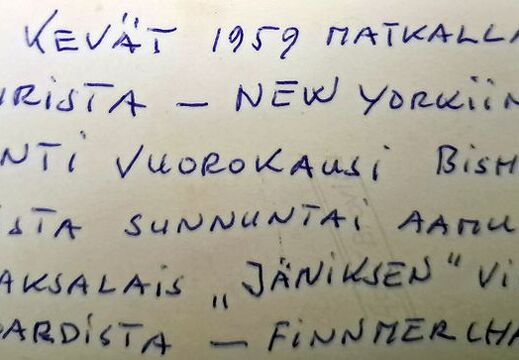 KEVÄT 1959 MATKALLA
RISTA — NEW YORKIIN
NTI VUOROKAUSI BISH
STA SUNNUNTAI AAMU
AKSALAIS „JÄNIKSEN" VI
ARDISTA — FINNMERCHA